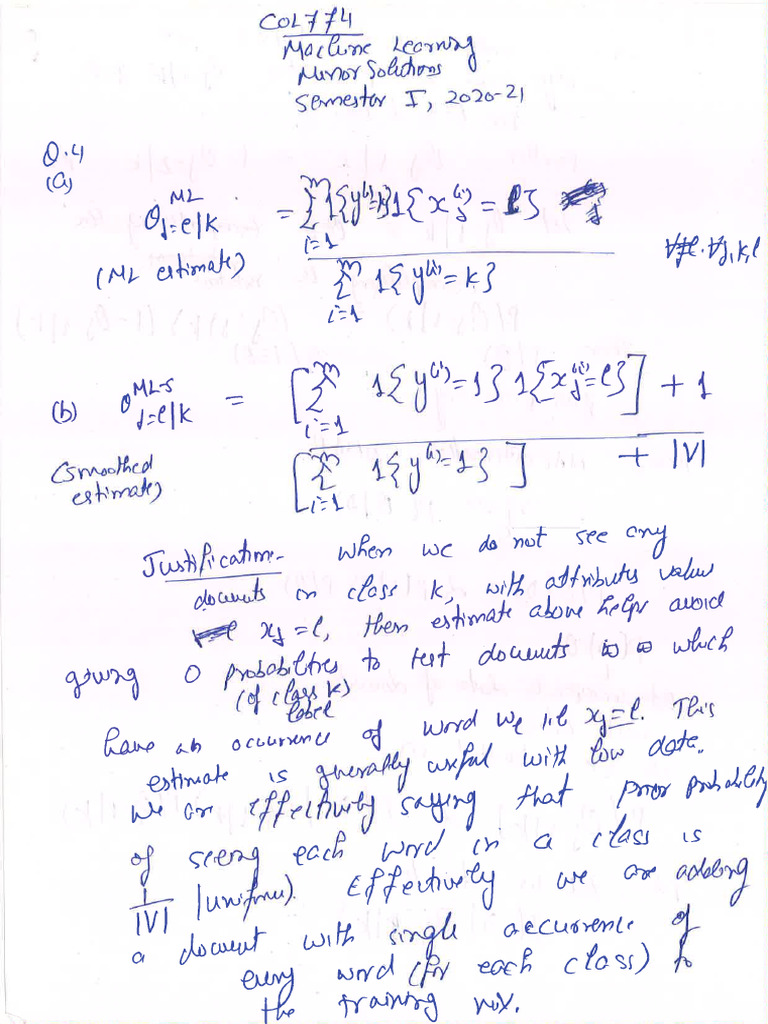 COL774
Machine Learning
Minor Solutions
Semester I, 2020-21
Q.4
(a)
θ^{ML}_{j=l|k} = \frac{\sum_{i=1}^{m} 1\{y^{(i)}=k\} 1\{x_j^{(i)} = l\}}{\sum_{i=1}^{m} 1\{y^{(i)}=k\}} ∀j,k,l
(ML estimate)
(b) θ^{ML-S}_{j=l|k} = \frac{[\sum_{i=1}^{m} 1\{y^{(i)}=1\} 1\{x_j^{(i)}=l\}] + 1}{[\sum_{i=1}^{m} 1\{y^{(i)}=1\}] + |V|}
(smoothed
estimate)
Justification - when we do not see any
documents in class k, with attributes value
x_j = l, then estimate above helps avoid
giving 0 probabilities to test documents which
(of class k)
label
have an occurrence of word w_l i.e. x_j = l. This
estimate is generally useful with low data.
We are effectively saying that prior probability
of seeing each word in a class is
\frac{1}{|V|} (uniform). Effectively we are adding
a document with single occurrence of
every word (for each class) to
the training mix.